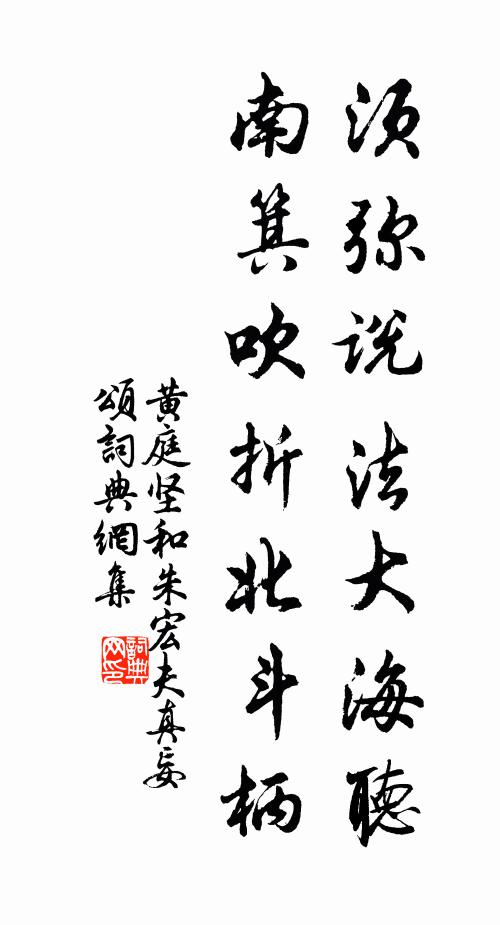 须弥说法大海聽
南箕吹折北斗柄
黄庭坚和朱宏夫真妄
頌詞典網集
詞典网印